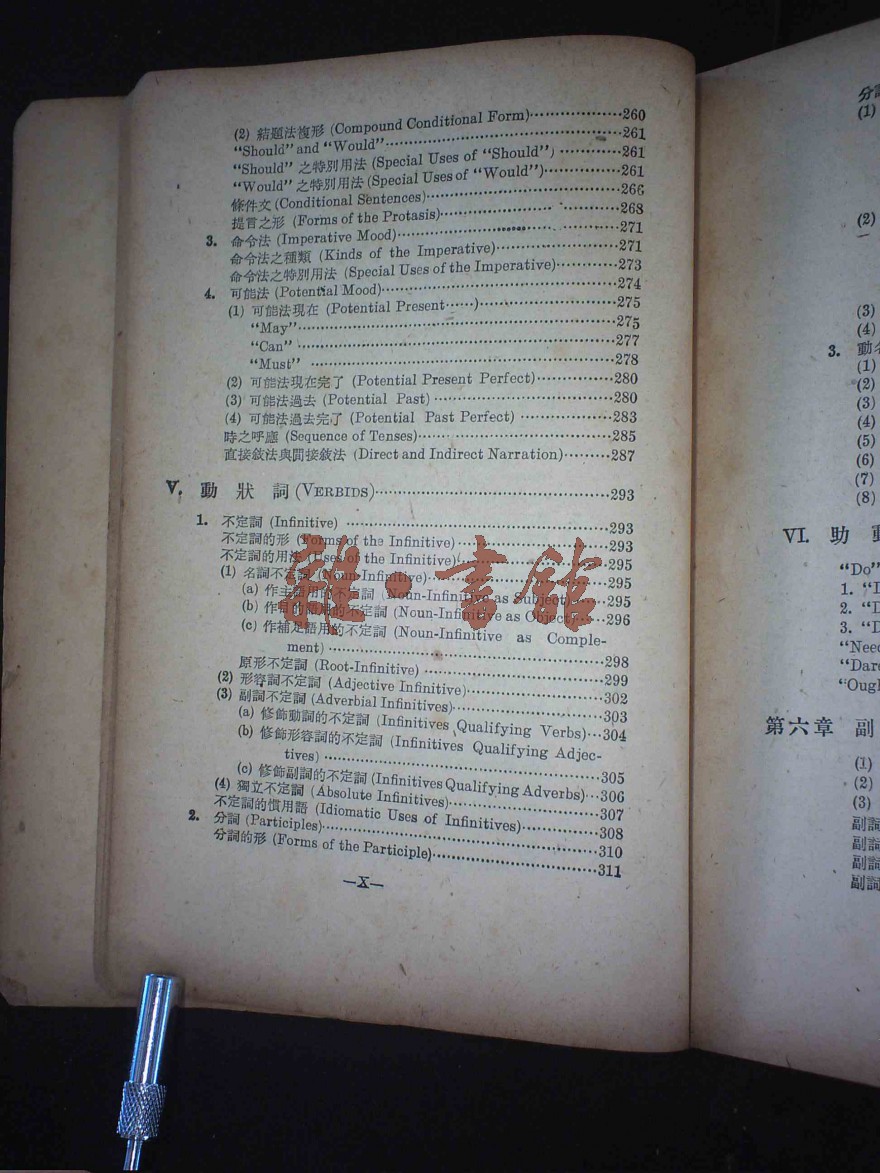 (2) 結題法複形 (Compound Conditional Form)··················260
“Should” and “Would”··················261
“Should” 之特別用法 (Special Uses of “Should”) ············261
“Would” 之特別用法 (Special Uses of “Would”)···············261
條件文 (Conditional Sentences)··················266
提言之形 (Forms of the Protasis)··················268
3. 命令法 (Imperative Mood)··················271
命令法之種類 (Kinds of the Imperative)··················271
命令法之特別用法 (Special Uses of the Imperative)············273
4. 可能法 (Potential Mood)··················274
(1) 可能法現在 (Potential Present······)··················275
“May”··················275
“Can” ··················277
“Must” ··················278
(2) 可能法現在完了 (Potential Present Perfect)···············280
(3) 可能法過去 (Potential Past) ··················280
(4) 可能法過去完了 (Potential Past Perfect) ··················283
時之呼應 (Sequence of Tenses)··················285
直接敘法與間接敘法 (Direct and Indirect Narration)·········287
V. 動狀詞 (VERBIDS)··················293
1. 不定詞 (Infinitive) ··················293
不定詞的形 (Forms of the Infinitive)··················293
不定詞的用法 (Uses of the Infinitive)··················295
(1) 名詞不定詞 (Noun-Infinitive)··················295
(a) 作主語用的不定詞 (Noun-Infinitive as Subject)······295
(b) 作目的語用的不定詞 (Noun-Infinitive as Object)······296
(c) 作補足語用的不定詞 (Noun-Infinitive as Comple-
ment) ··················298
原形不定詞 (Root-Infinitive) ··················299
(2) 形容詞不定詞 (Adjective Infinitive)··················302
(3) 副詞不定詞 (Adverbial Infinitives)··················303
(a) 修飾動詞的不定詞 (Infinitives Qualifying Verbs)···304
(b) 修飾形容詞的不定詞 (Infinitives Qualifying Adjec-
tives) ··················305
(c) 修飾副詞的不定詞 (Infinitives Qualifying Adverbs)···306
(4) 獨立不定詞 (Absolute Infinitives)··················307
不定詞的慣用語 (Idiomatic Uses of Infinitives)···············308
2. 分詞 (Participles)··················310
分詞的形 (Forms of the Participle)··················311
—X—
雜·書館
分詞
(1)
(2)
(3)
(4)
3. 動名
(1)
(2)
(3)
(4)
(5)
(6)
(7)
(8)
VI. 助動
“Do”
1. “D
2. “D
3. “D
“Need
“Dare
“Ough
第六章 副
(1)
(2)
(3)
副詞
副詞
副詞
副詞